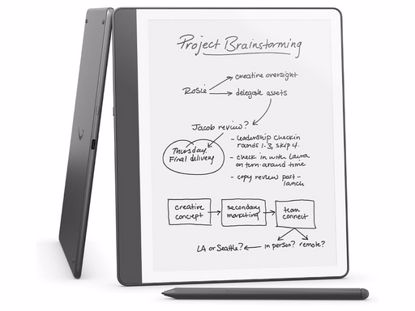 Project Brainstorming
Rosie
creative oversight
delegate assets
Jacob review?
Thursday,
Final delivery
- leadership checkin
rounds 1-3, skip 4.
- check in with Laura
on turn around time
- copy review post-
launch
creative
concept
secondary
marketing
team
connect
LA or Seattle?
in person?
remote?